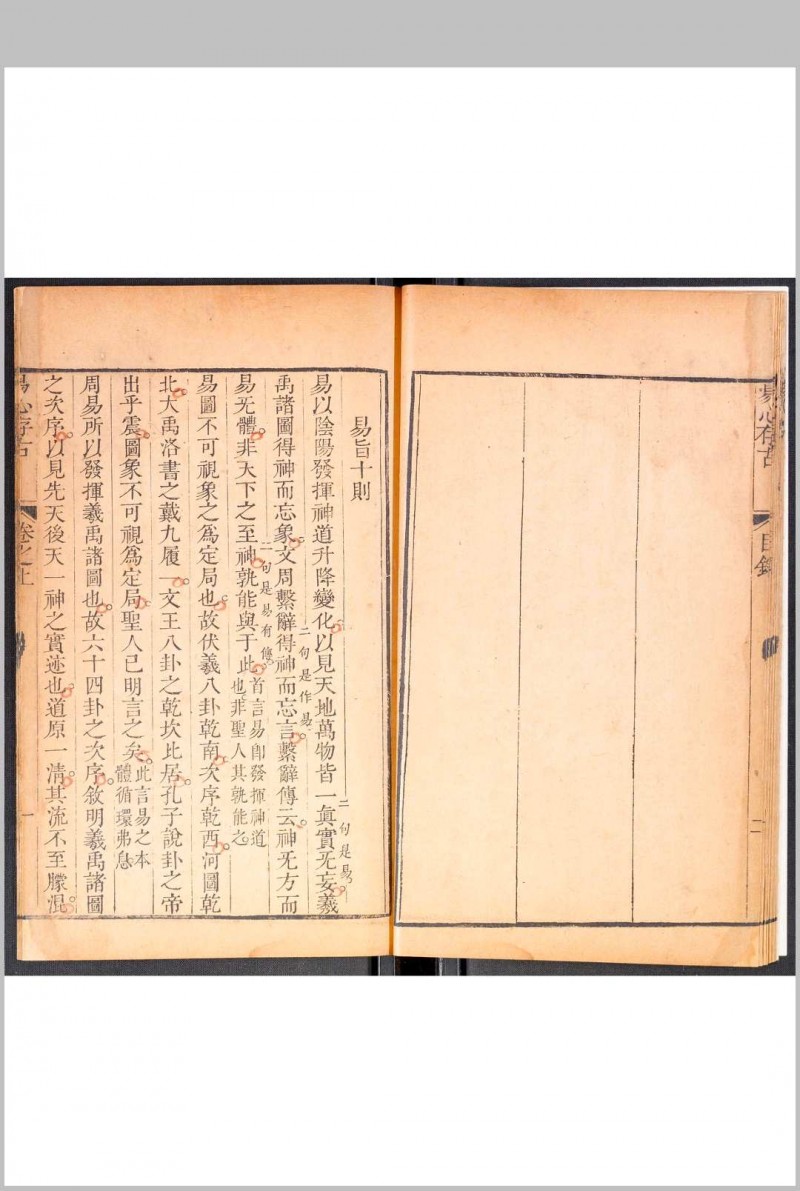 易心存古
目錄
二
易旨十則
易以陰陽發揮神道升降變化以見天地萬物皆一眞實无妄羲
二句是易
禹諸圖得神而忘象文周繫辭得神而忘言繫辭傳云神无方而
二句是作易
易无體非天下之至神孰能與于此首言易卽發揮神道也非聖人其孰能之
二句是易有傳
易圖不可視象之爲定局也故伏羲八卦乾南次序乾西河圖乾
北大禹洛書之戴九履一文王八卦之乾坎比居孔子說卦之帝
出乎震圖象不可視爲定局聖人已明言之矣此言易之本體循環弗息
周易所以發揮羲禹諸圖也故六十四卦之次序敘明羲禹諸圖
之次序以見先天後天一神之實迹也道原一淸其流不至朦混
易心存古
卷之上
一